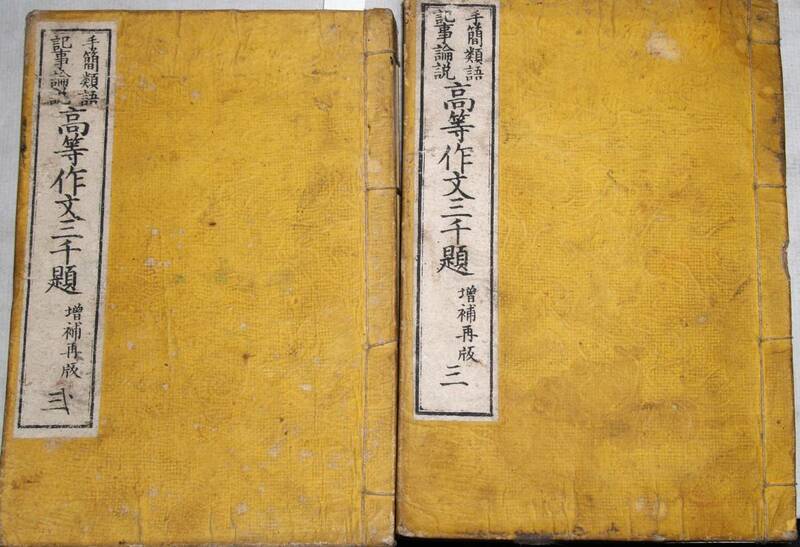 手簡類語
記事論説
高等作文三千題
增補再版
手簡類語
記事論説
高等作文三千題
增補再版
三